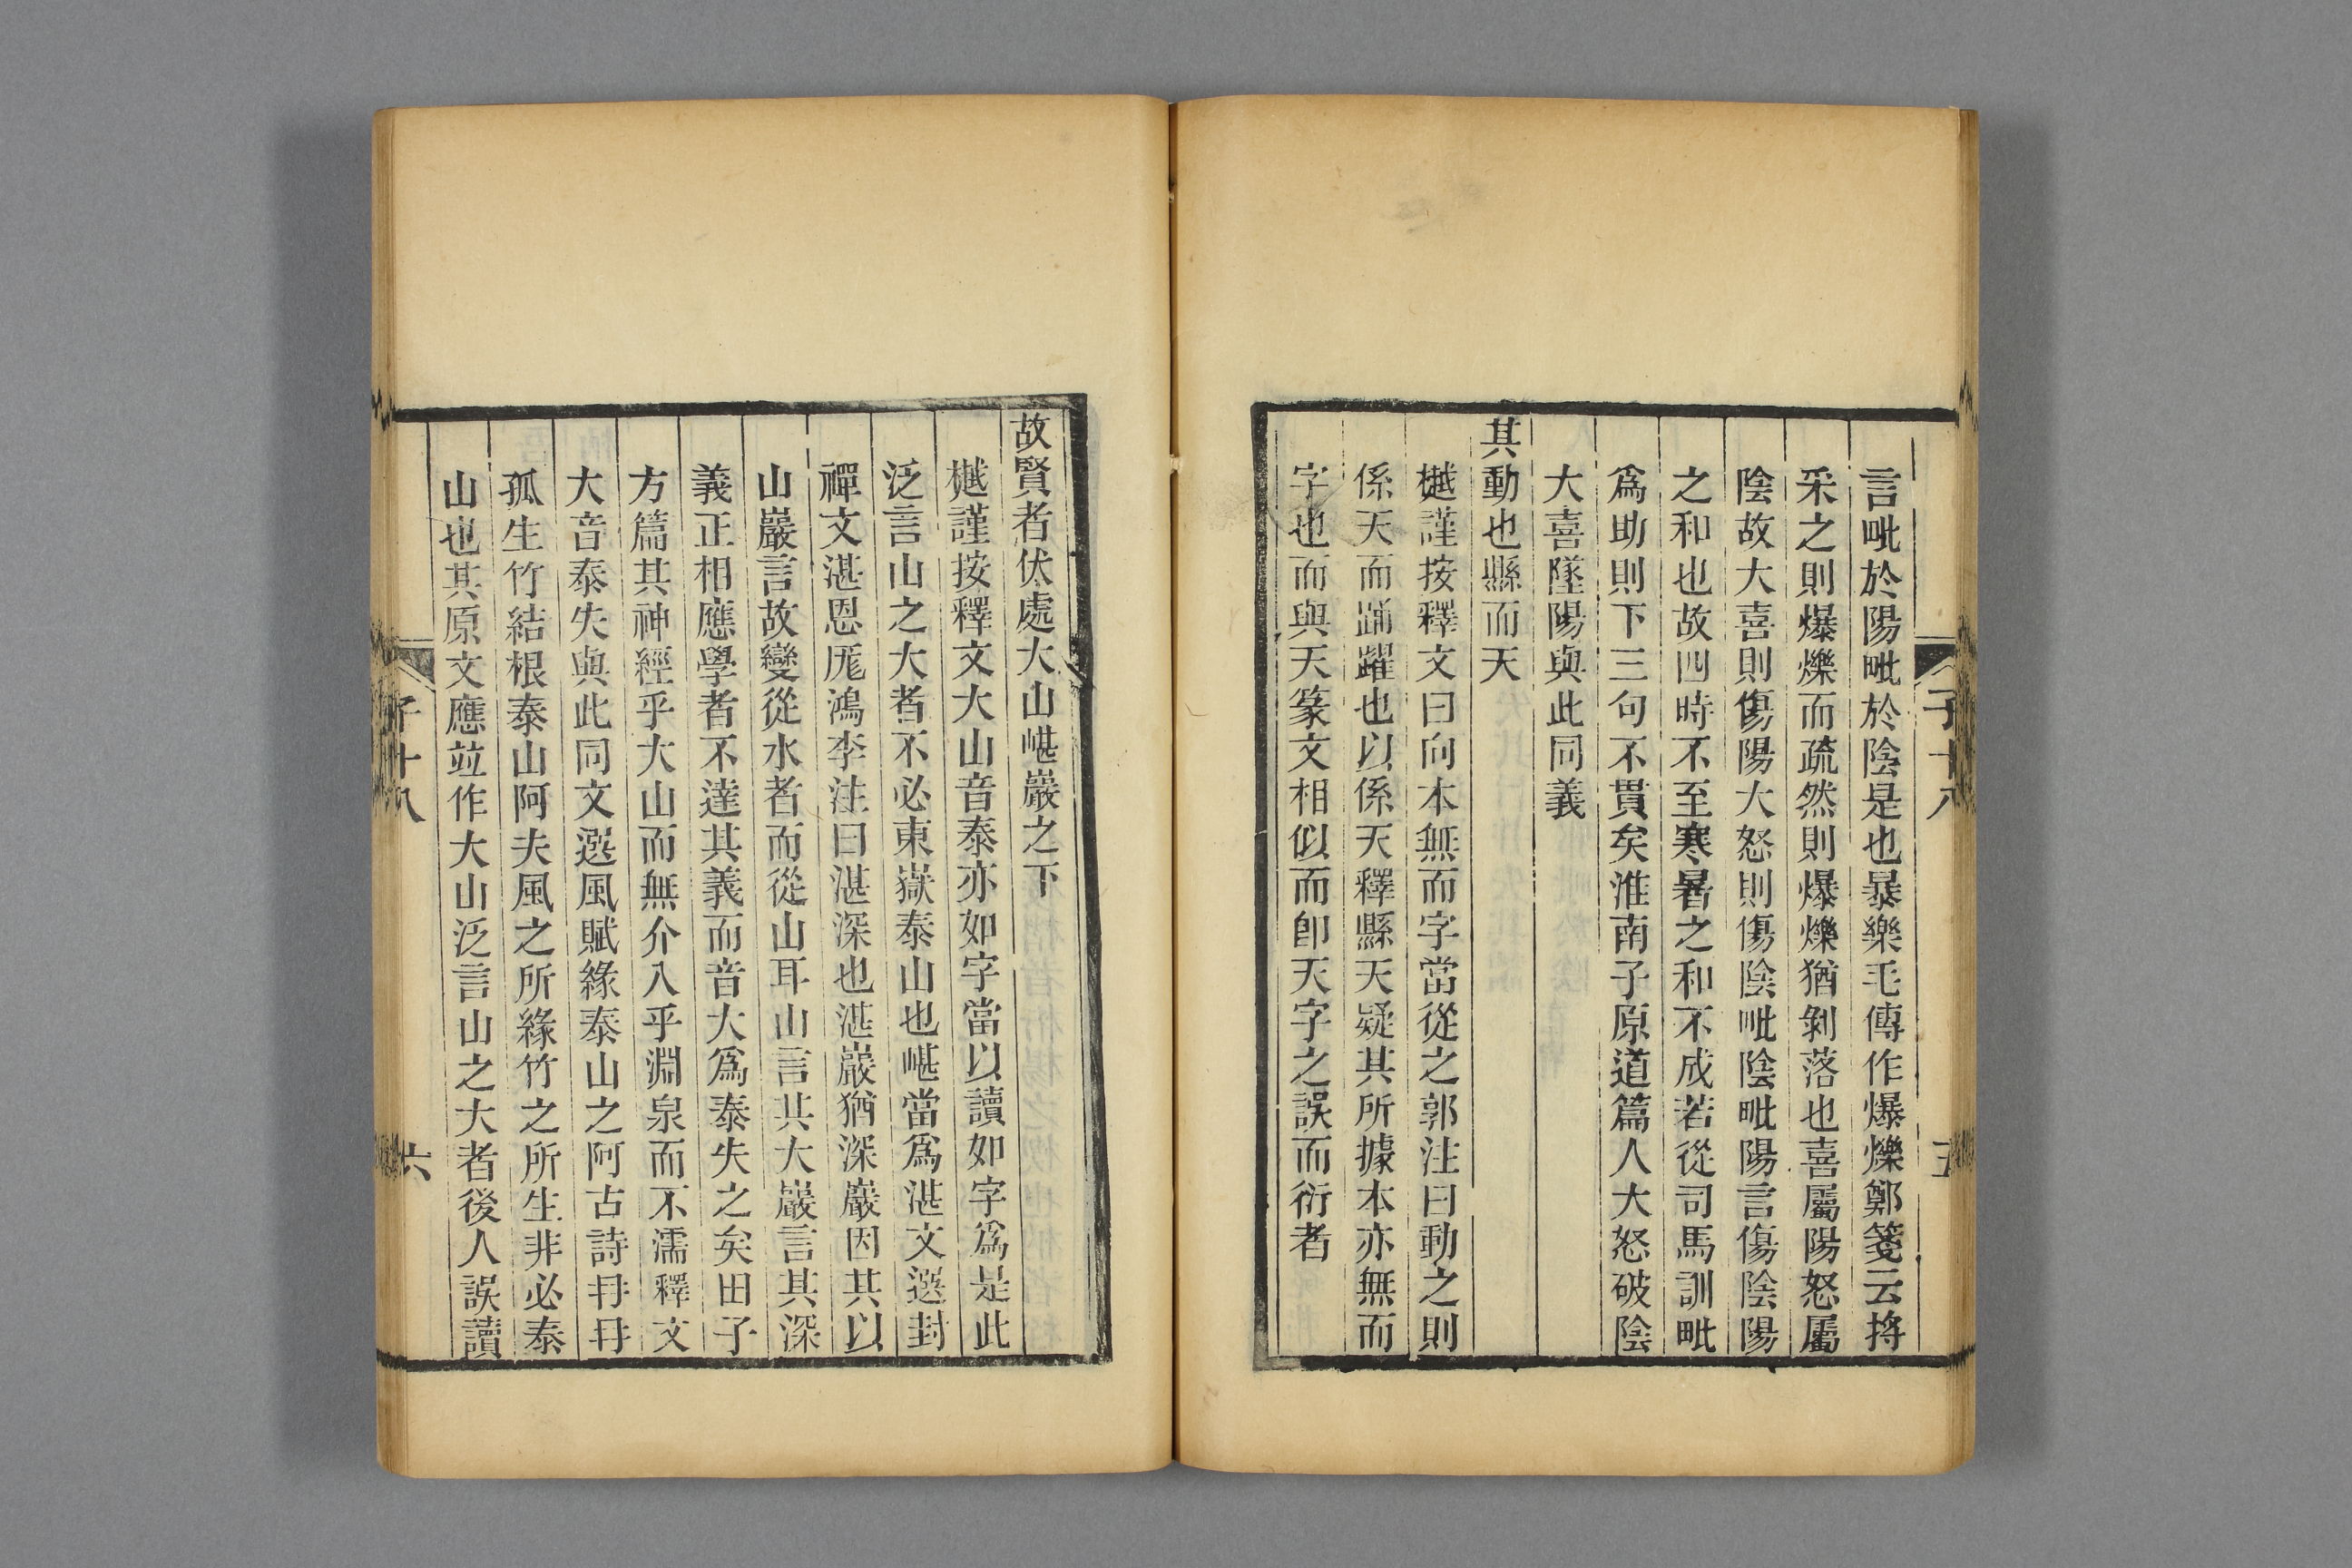 言毗於陽毗於陰是也暴樂毛傳作爆爍鄭箋云捋
采之則爆爍而疏然則爆爍猶剝落也喜屬陽怒屬
陰故大喜則傷陽大怒則傷陰毗陰毗陽言傷陰陽
之和也故四時不至寒暑之和不成若從司馬訓毗
爲助則下三句不貫矣淮南子原道篇人大怒破陰
大喜墜陽與此同義
其動也縣而天
樾謹按釋文曰向本無而字當從之郭注曰動之則
係天而踊躍也以係天釋縣天疑其所據本亦無而
字也而與天篆文相似而卽天字之誤而衍者
子十八
五
故賢者伏處大山嵁巖之下
樾謹按釋文大山音泰亦如字當以讀如字爲是此
泛言山之大者不必東嶽泰山也嵁當爲湛文選封
禪文湛恩厖鴻李注曰湛深也湛巖猶深巖因其以
山巖言故變從水者而從山耳山言其大巖言其深
義正相應學者不達其義而音大爲泰失之矣田子
方篇其神經乎大山而無介入乎淵泉而不濡釋文
大音泰失與此同文選風賦緣泰山之阿古詩冄冄
孤生竹結根泰山阿夫風之所緣竹之所生非必泰
山也其原文應竝作大山泛言山之大者後人誤讀
子十八
六